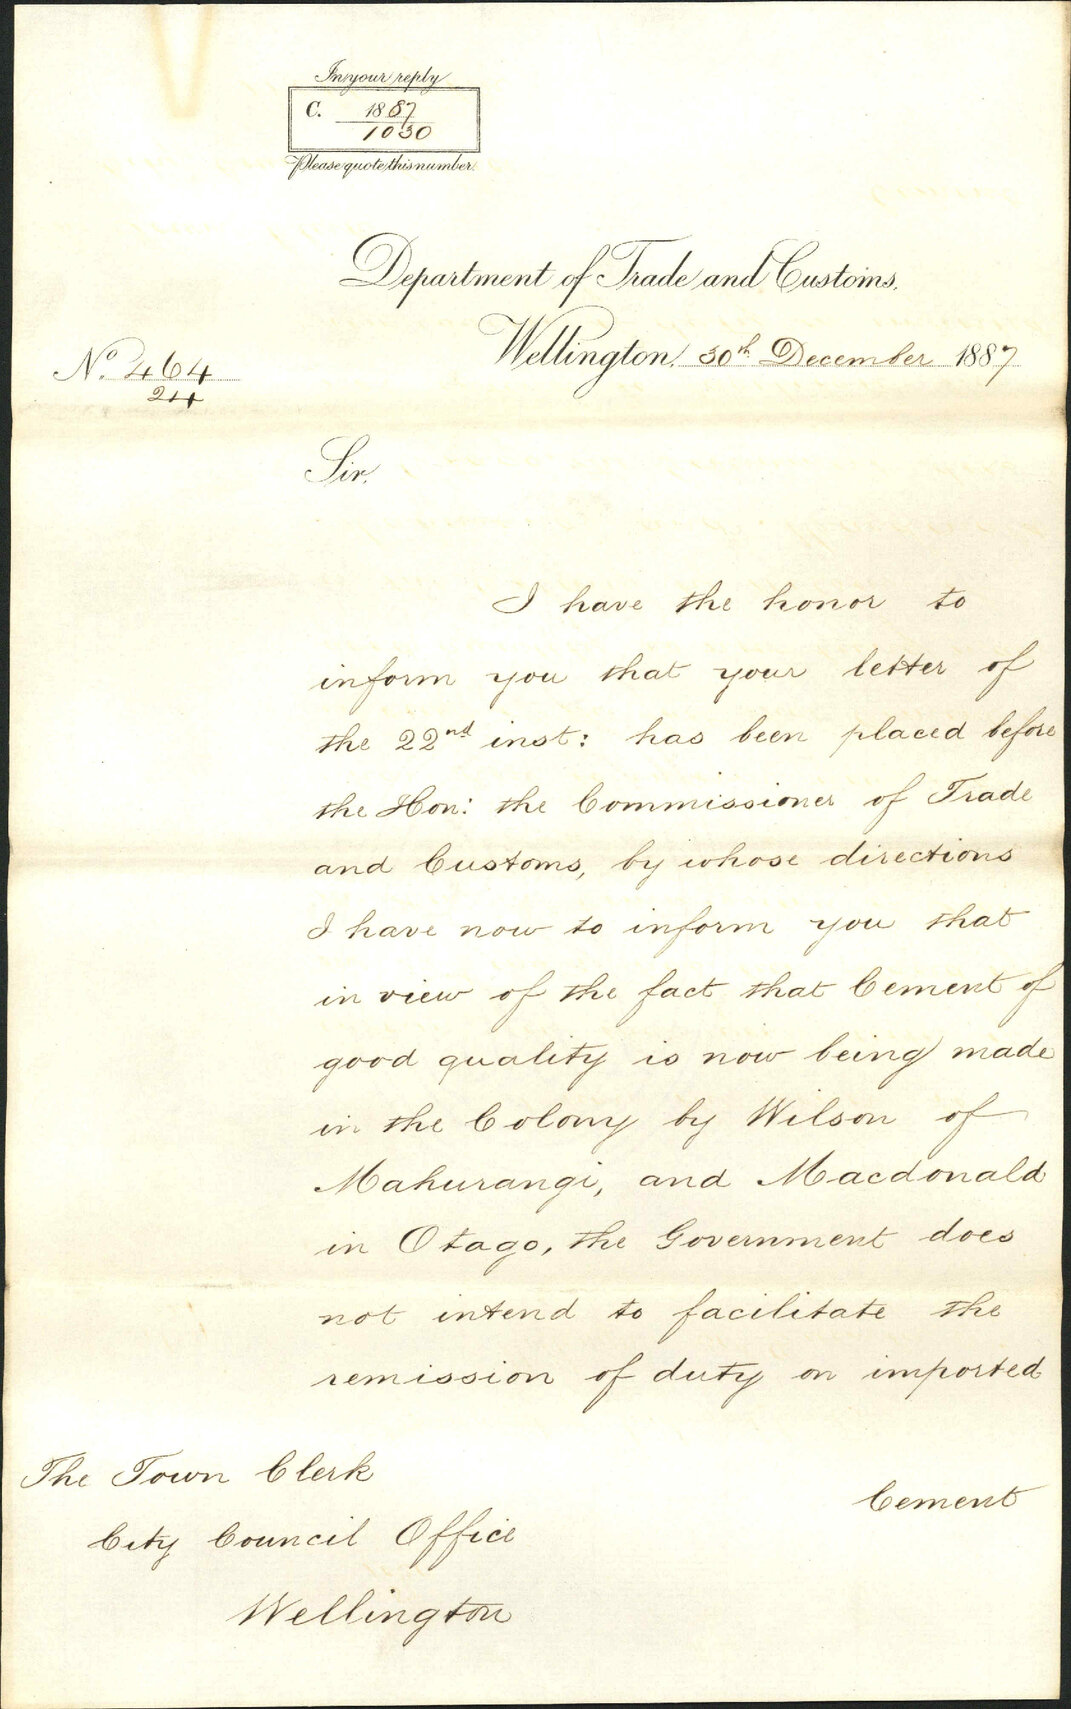 In your reply
C. 1887
1030
Please quote this number.
Department of Trade and Customs,
Wellington, 30th December 1887
No. 464
24
Sir,
I have the honor to
inform you that your letter of
the 22nd inst: has been placed before
the Hon: the Commissioner of Trade
and Customs, by whose directions
I have now to inform you that
in view of the fact that Cement of
good quality is now being made
in the Colony by Wilson of
Mahurangi, and Macdonald
in Otago, the Government does
not intend to facilitate the
remission of duty on imported
Cement
The Town Clerk
City Council Office
Wellington